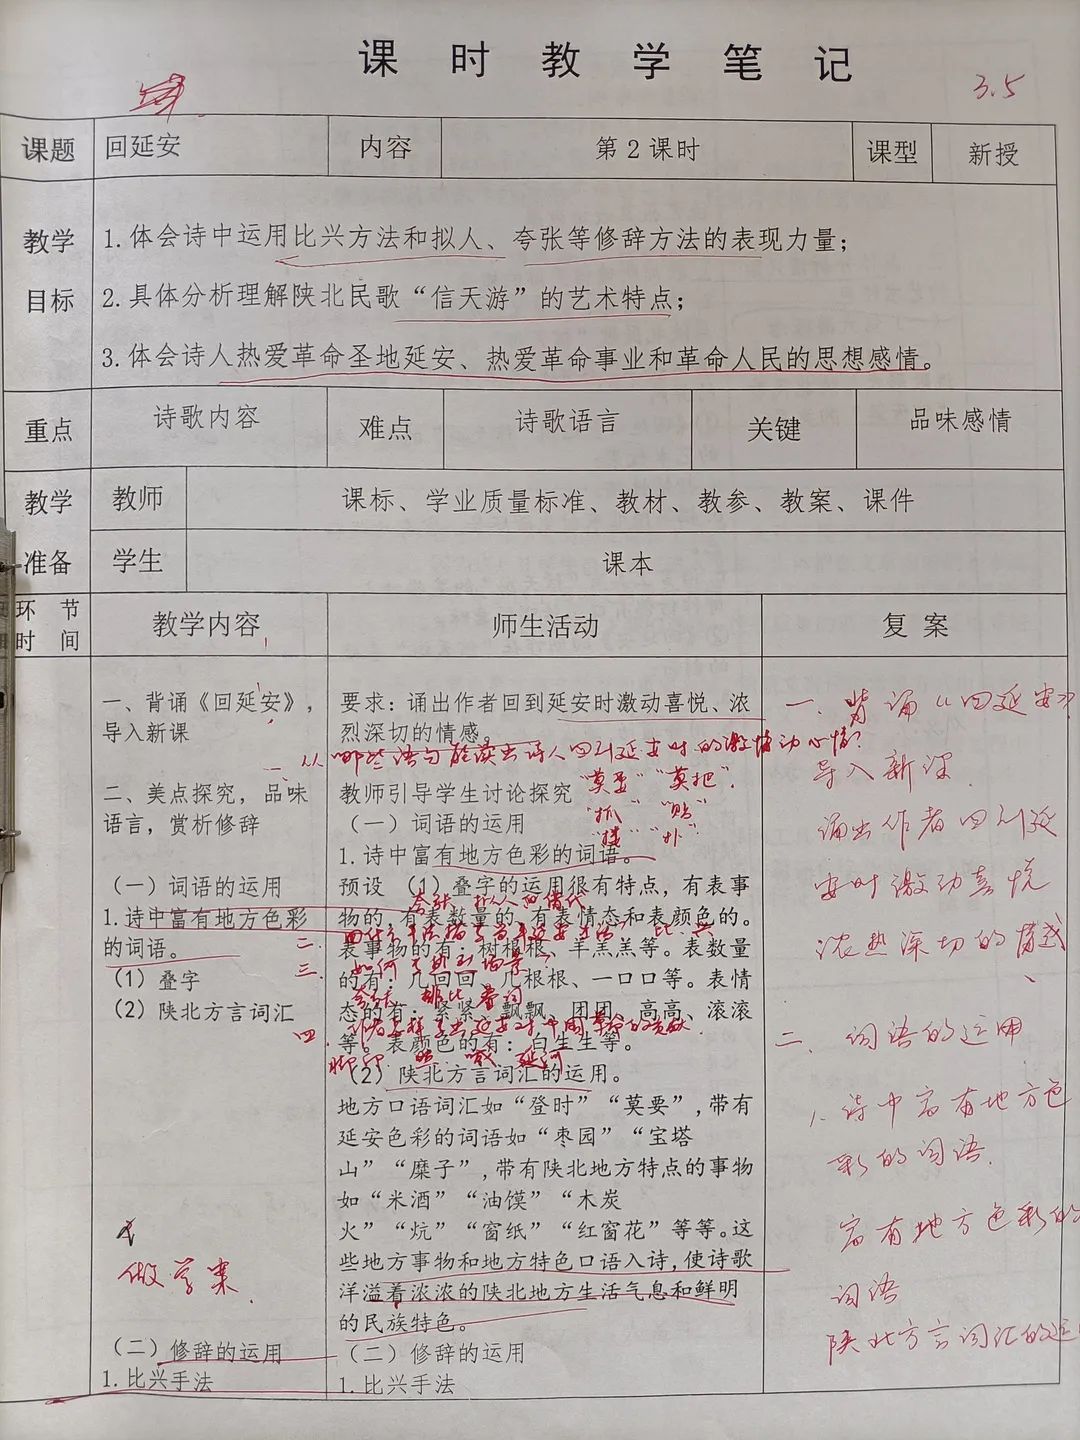 课时教学笔记
3.5
课题 回延安 内容 第2课时 课型 新授
教学 1.体会诗中运用比兴方法和拟人、夸张等修辞方法的表现力量；
目标 2.具体分析理解陕北民歌“信天游”的艺术特点；
3.体会诗人热爱革命圣地延安、热爱革命事业和革命人民的思想感情。
重点 诗歌内容 难点 诗歌语言 关键 品味感情
教学 教师 课标、学业质量标准、教材、教参、教案、课件
准备 学生 课本
环节
时间 教学内容 师生活动 复案
一、背诵《回延安》，
导入新课
二、美点探究，品味
语言，赏析修辞
（一）词语的运用
1.诗中富有地方色彩
的词语。
（1）叠字
（2）陕北方言词汇
做学案
（二）修辞的运用
1.比兴手法
要求：诵出作者回到延安时激动喜悦、浓
烈深切的情感。
一、从哪些语句能读出诗人回到延安时的激动心情？
教师引导学生讨论探究
“莫要”“莫把”
（一）词语的运用
“抓”“贴”
“搂”“扑”
1.诗中富有地方色彩的词语。
预设（1）叠字的运用很有特点，有表事
夸张 拟人 借代
物的，有表数量的，有表情态和表颜色的。
二、
表事物的有：树根根、羊羔羔等。表数量
三、如何
的有：几回回、几根根、一口口等。表情
夸张 排比
态的有：紧紧、飘飘、团团、高高、滚滚
四、
等。表颜色的有：白生生等。
脚印 延河
（2）陕北方言词汇的运用。
地方口语词汇如“登时”“莫要”,带有
延安色彩的词语如“枣园”“宝塔
山”“糜子”,带有陕北地方特点的事物
如“米酒”“油馍”“木炭
火”“炕”“窗纸”“红窗花”等等。这
些地方事物和地方特色口语入诗，使诗歌
洋溢着浓浓的陕北地方生活气息和鲜明
的民族特色。
（二）修辞的运用
1.比兴手法
一、背诵《回延安》
导入新课
诵出作者回到延
安时激动喜悦
浓烈深切的情感
二、词语的运用
1.诗中富有地方色
彩的词语
富有地方色彩的
词语
陕北方言词汇的运